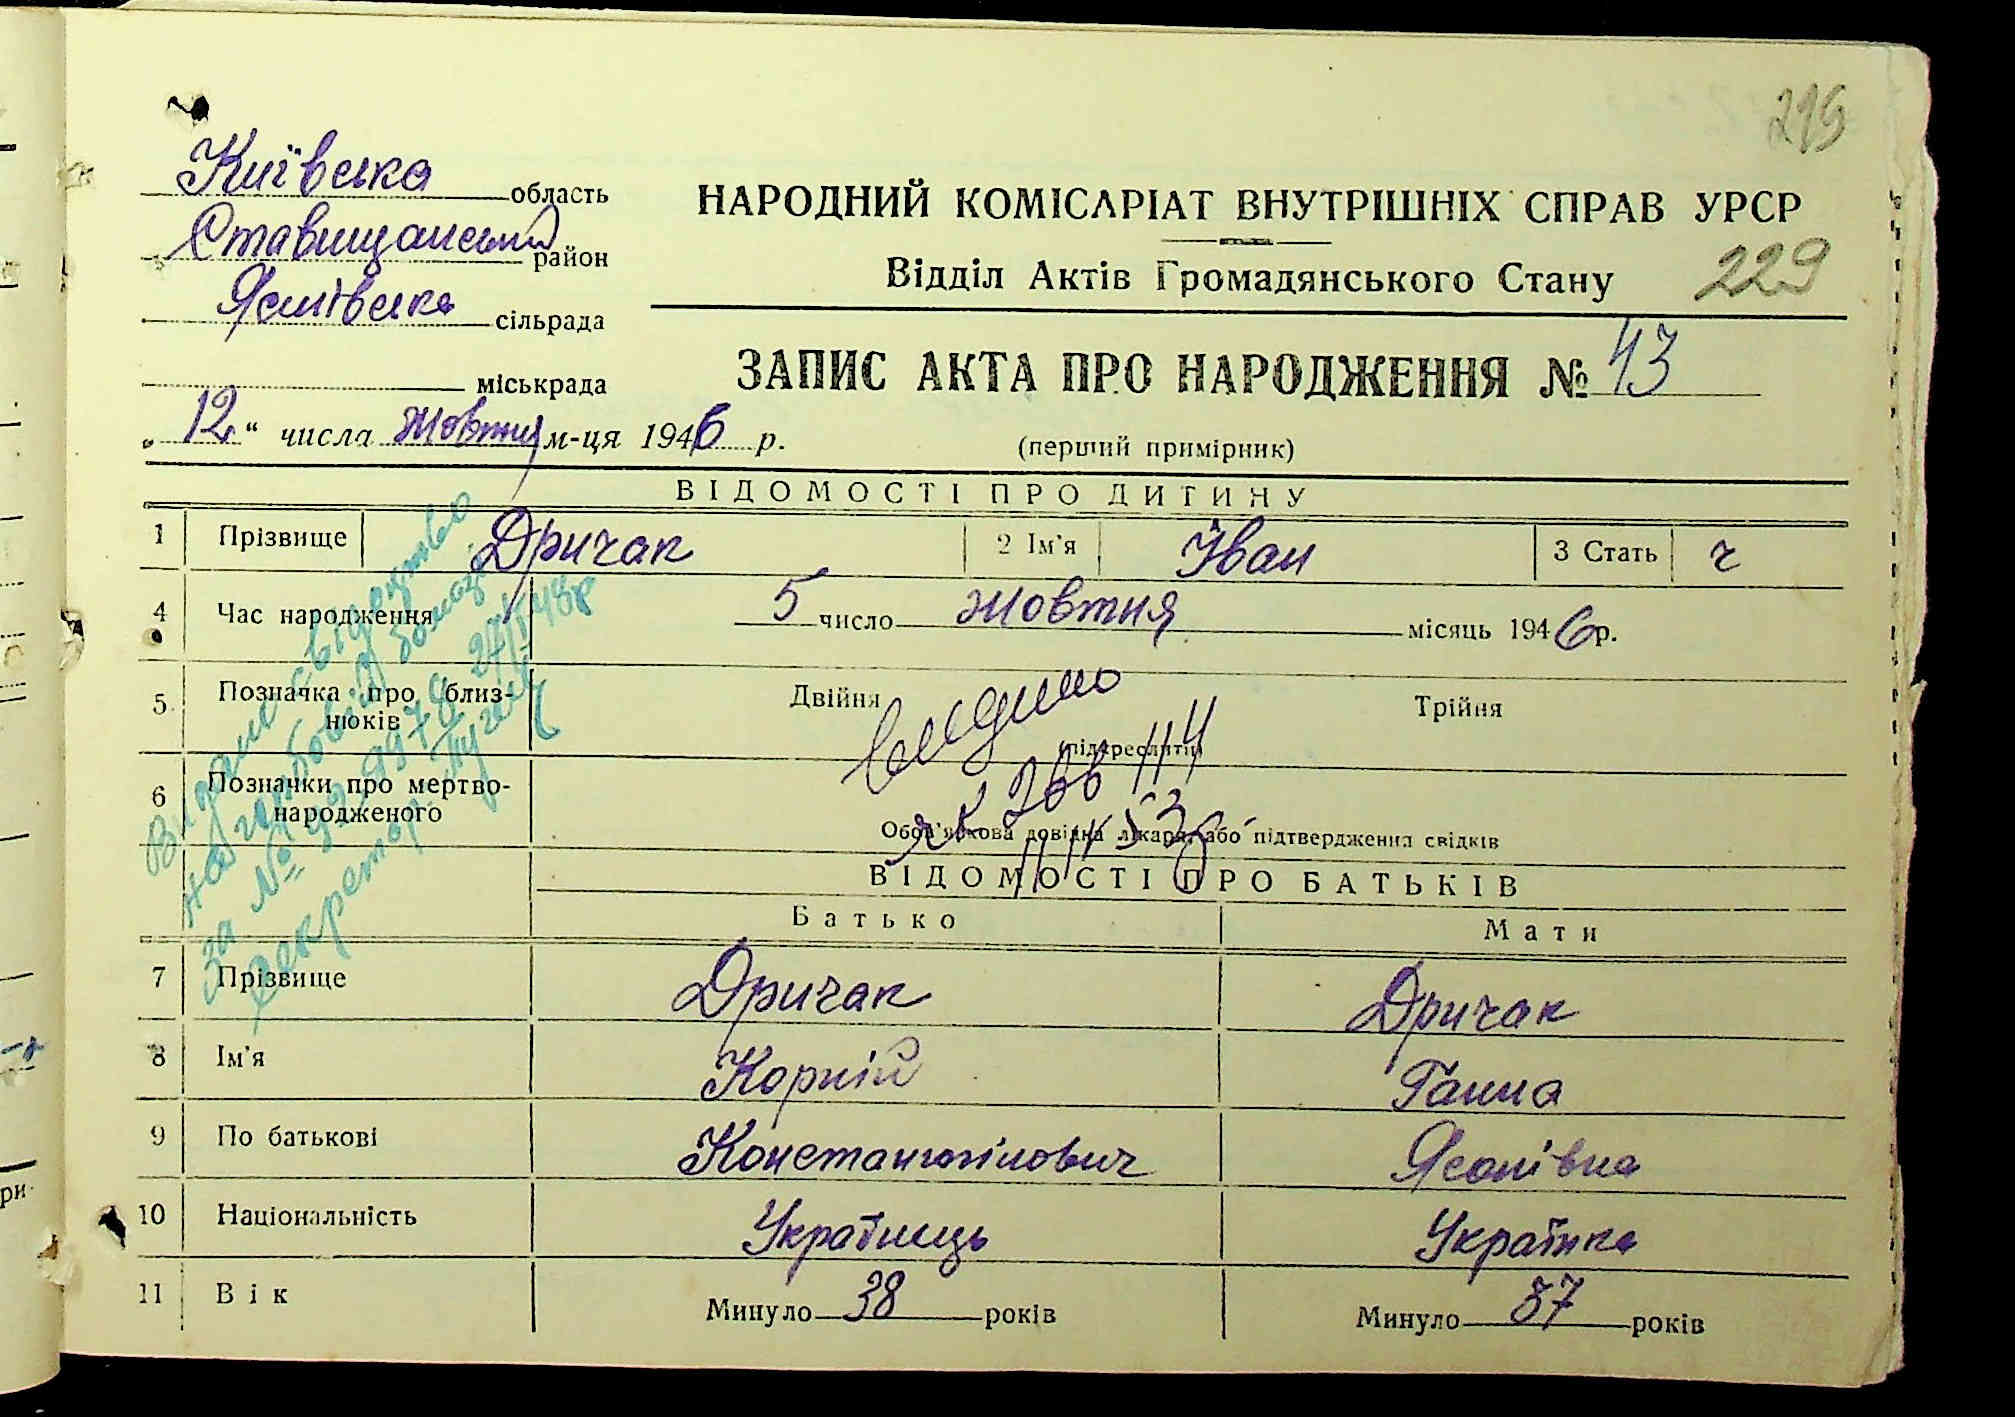 219
Київська область
Ставищанський район
сільрада
міськрада
НАРОДНИЙ КОМІСАРІАТ ВНУТРІШНІХ СПРАВ УРСР
Відділ Актів Громадянського Стану 229
ЗАПИС АКТА ПРО НАРОДЖЕННЯ № 43
„12“ числа жовтня м-ця 1946 р.
(перший примірник)
ВІДОМОСТІ ПРО ДИТИНУ
1 Прізвище Дричак 2 Ім'я Іван 3 Стать ч
4 Час народження 5 число жовтня місяць 1946 р.
5 Позначка про близ-
нюків Двійня Трійня
(підкреслити)
6 Позначки про мертво-
народженого
Обов'язкова довідка лікаря або підтвердження свідків
ВІДОМОСТІ ПРО БАТЬКІВ
Батько Мати
7 Прізвище Дричак Дричак
8 Ім'я Корній Ганна
9 По батькові Константінович
10 Національність Українець Українка
11 Вік Минуло 38 років Минуло 37 років